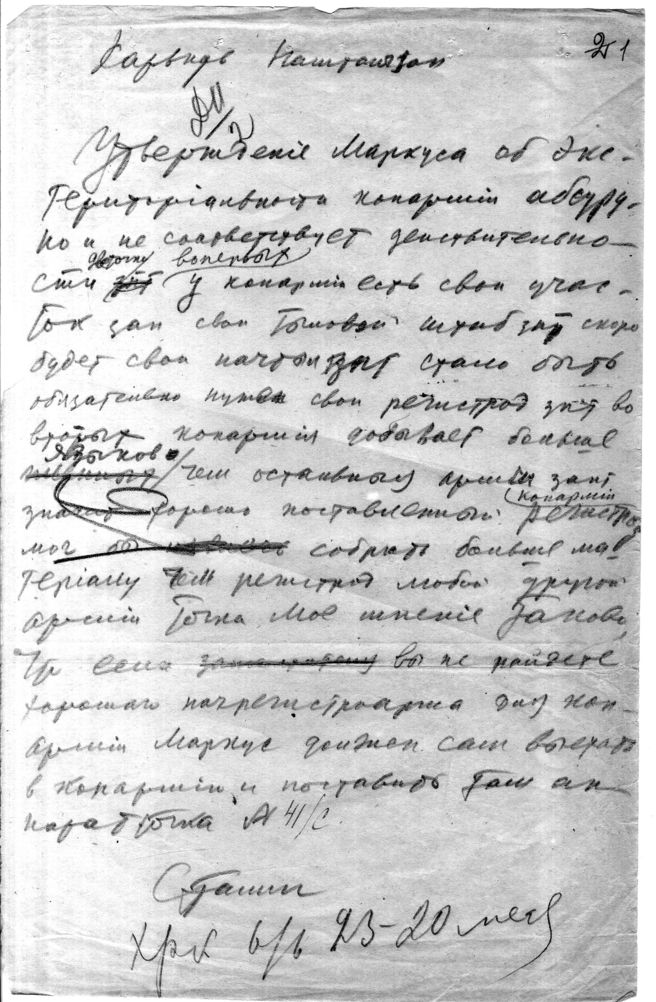 Харьков Наштоюзап
21
Утвержденіе Маркуса об экс-
територіальности конарміи абсурд-
но и не соответствует действительно-
сти точку вопервых у конарміи есть свои учас-
ток зап свои тыловой штаб зпт скоро
будет свои начтыл зпт стало быть
обязательно нужен свои регистрод зпт во
вторых конармія добывает больше
языков чем остальныя арміи зпт
значит хорошо поставленный конарміи регистрод
мог бы собрать больше ма-
теріалу чем регистрод любой другой
арміи точка Мое мненіе таково
что если вы не найдете
хорошаго начрегистроарма для кон-
арміи Маркус должен сам выехать
в конармію и поставить там ап-
парат точка № 41/с.
Сталин
23-20